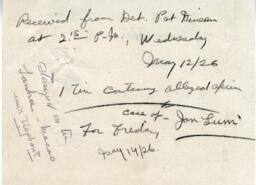 Received from Det. Pat Dineen
at 2:15 P.M., Wednesday
May 12/26
1 Tin containing alleged opium
case of Jan Sum
For Friday
May 14/26.
in tin